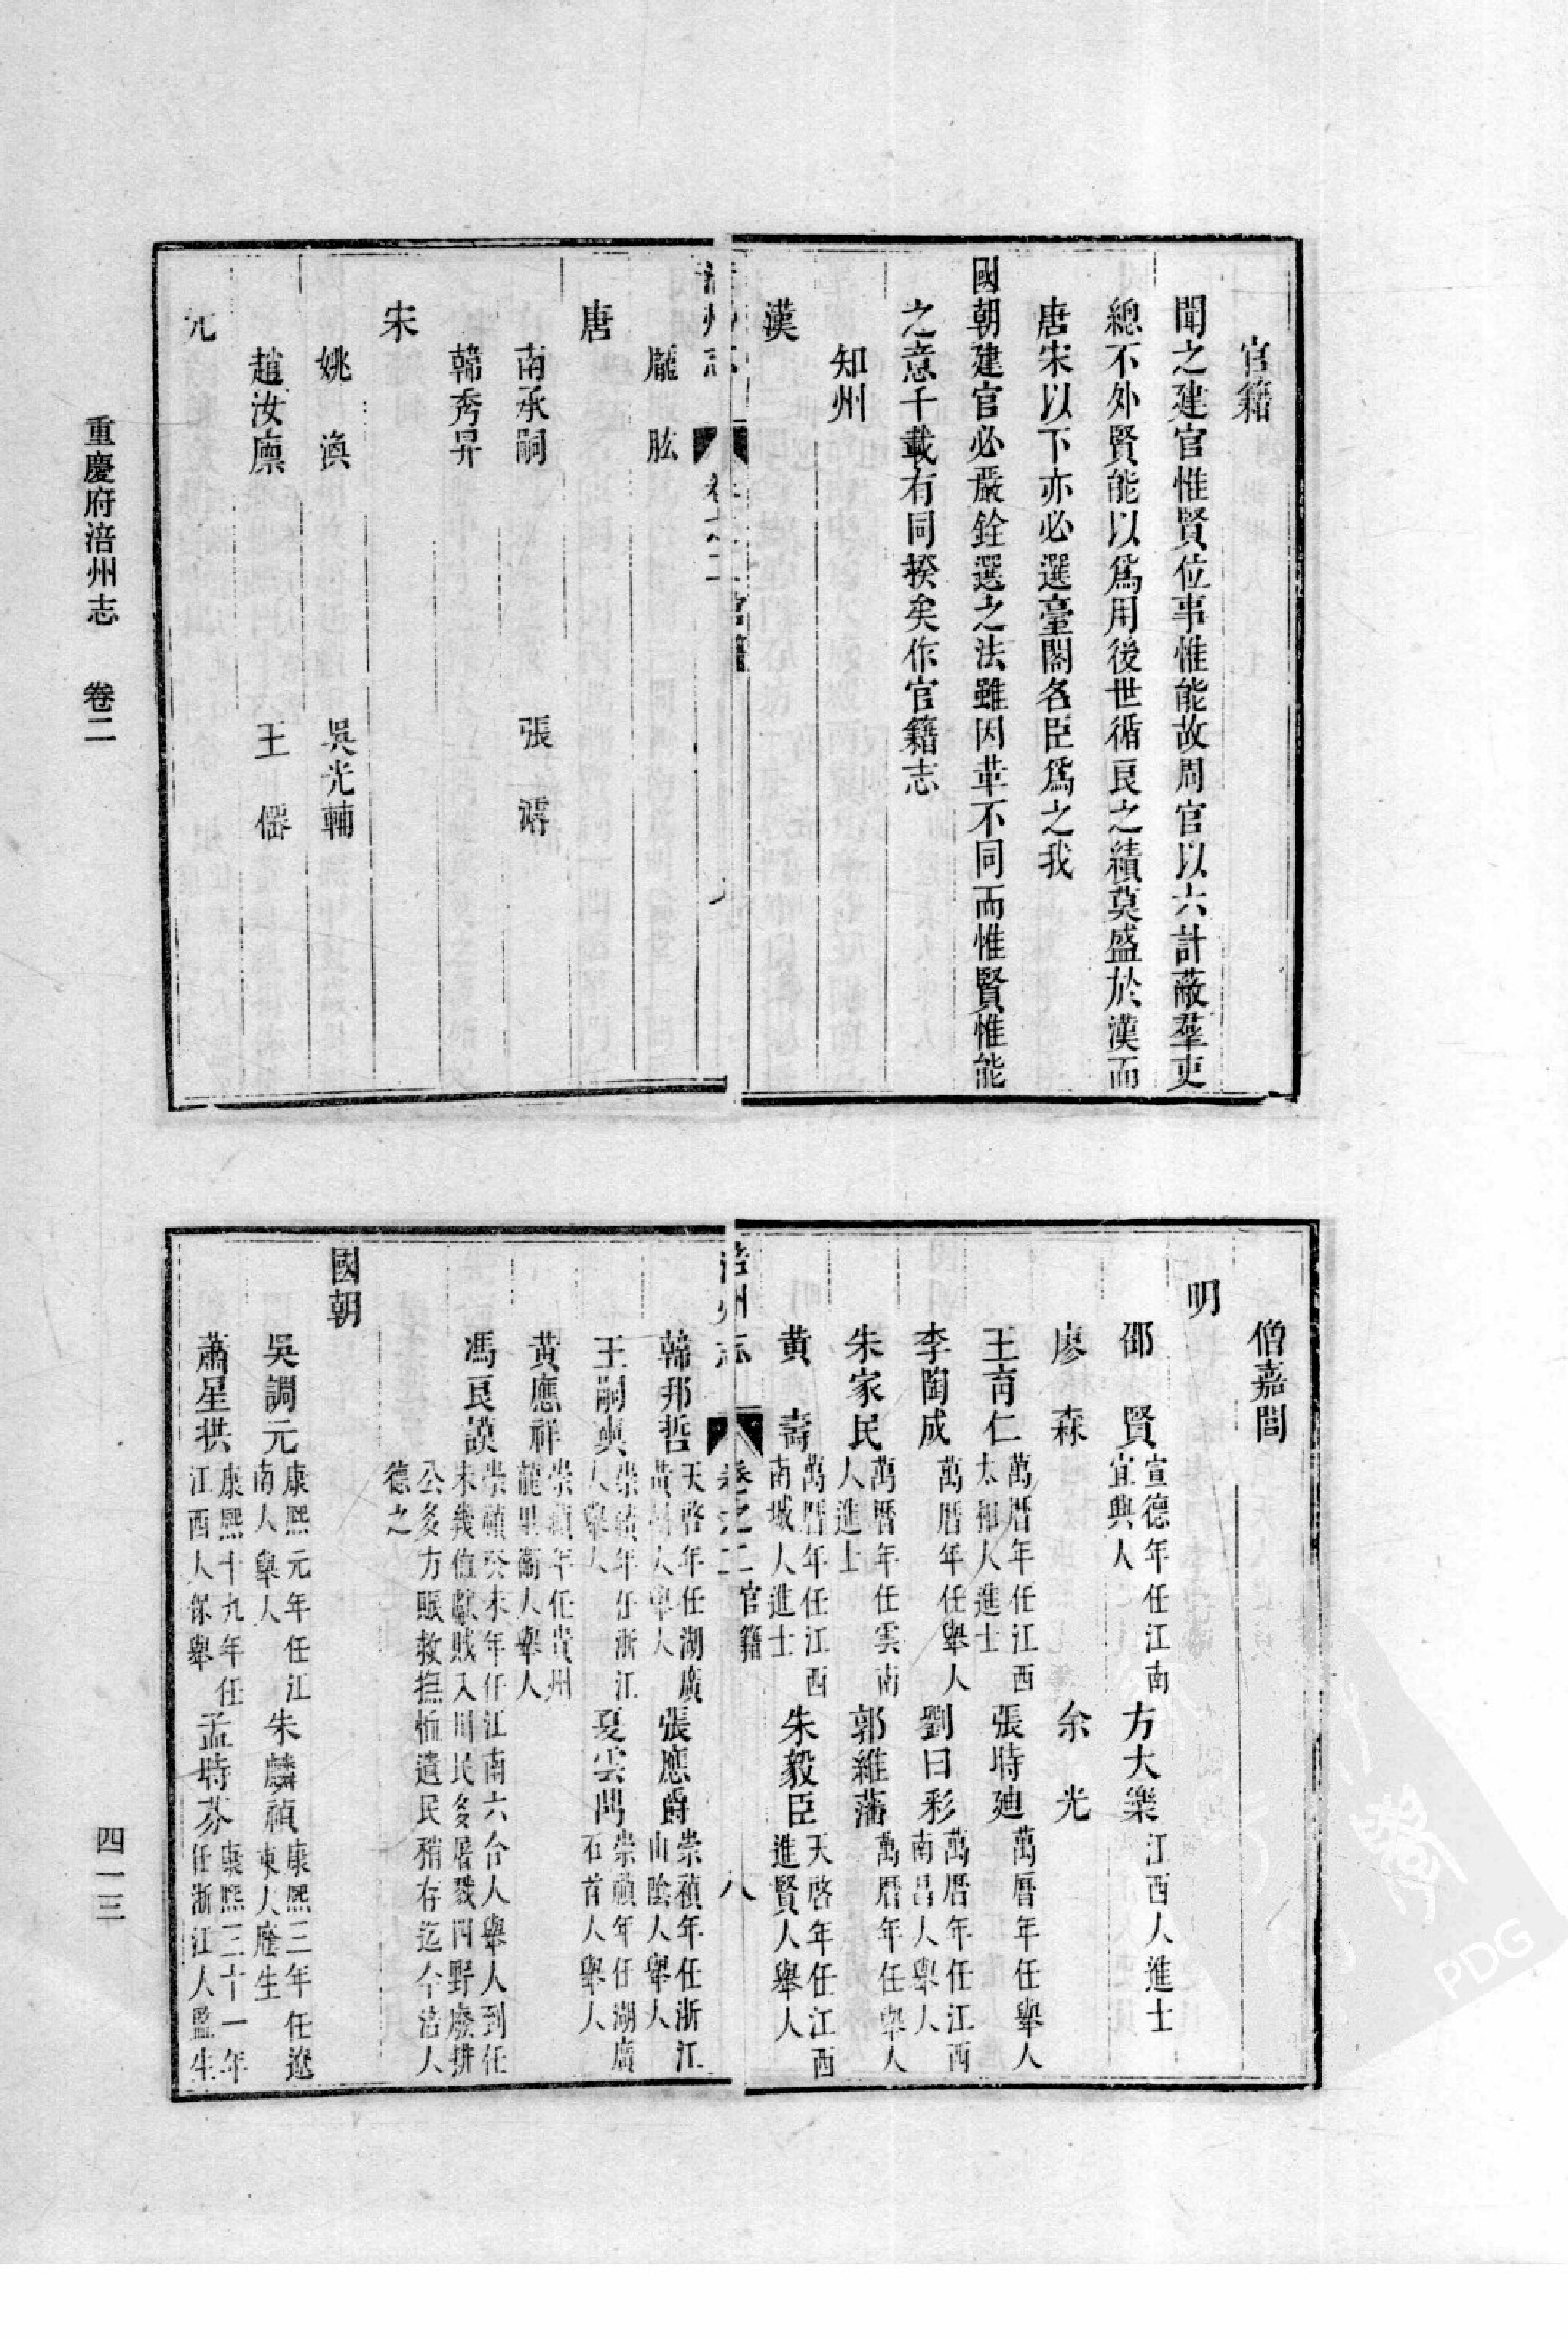 官籍
聞之建官惟賢位事惟能故周官以六計蔽羣吏
總不外賢能以爲用後世循良之績莫盛於漢而
唐宋以下亦必選臺閣名臣爲之我
國朝建官必嚴銓選之法雖因革不同而惟賢惟能
之意千載有同揆矣作官籍志
知州
漢
龐　肱
唐
南承嗣　張　濬
韓秀昇
宋
姚　渙　吳光輔
趙汝廩　王　僊
元
重慶府涪州志　卷二
僧嘉閭
明
邵　賢　宣德年任江南
宜興人　方大樂　江西人進士
廖　森　余　光
王育仁　萬曆年任江西
太和人進士　張時廸　萬曆年任舉人
李陶成　萬曆年任舉人　劉日彩　萬曆年任江西
南昌人舉人
朱家民　萬曆年任雲南
人進士　郭維藩　萬曆年任舉人
黄　壽　萬曆年任江西
南城人進士　朱毅臣　天啓年任江西
進賢人舉人
涪州志　卷之二　官籍　八
韓邦哲　天啓年任湖廣
黃州人舉人　張應爵　崇禎年任浙江
山陰人舉人
王嗣奭　崇禎年任浙江
人舉人　夏雲門　崇禎年任湖廣
石首人舉人
黄應祥　崇禎年任貴州
龍里衛人舉人
馮良謨　崇禎癸未年任江南六合人舉人到任
未幾值獻賊入川民多屠戮四野廢耕
公多方賑救撫恤遺民稍存迄今涪人
德之
國朝
吳調元　康熙元年任江
南人舉人　朱麟禎　康熙三年任遼
東人廕生
蕭星拱　康熙十九年任
江西人保舉　孟時芬　康熙三十一年
任浙江人監生
四一三